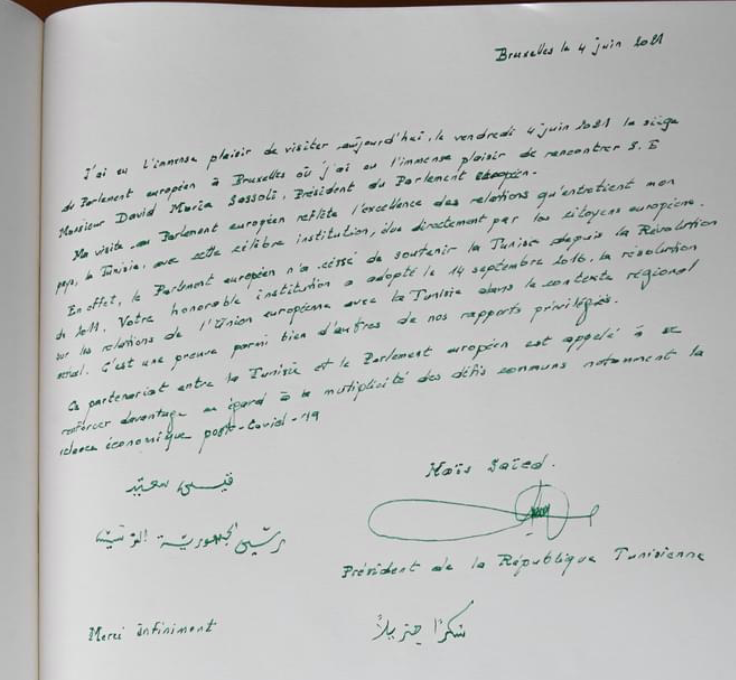 Bruxelles le 4 juin 2021
J'ai eu l'immense plaisir de visiter aujourd'hui, le vendredi 4 juin 2021 le siège
du Parlement européen à Bruxelles où j'ai eu l'immense plaisir de rencontrer S. E
Monsieur David Maria Sassoli, Président du Parlement européen.
Ma visite au Parlement européen reflète l'excellence des relations qu'entretient mon
pays, la Tunisie, avec cette célèbre institution, élue directement par les citoyens européens.
En effet, le Parlement européen n'a cessé de soutenir la Tunisie depuis la Révolution
de 2011. Votre honorable institution a adopté le 14 septembre 2016, la résolution
sur les relations de l'Union européenne avec la Tunisie dans le contexte régional
actuel. C'est une preuve parmi bien d'autres de nos rapports privilégiés.
Ce partenariat entre la Tunisie et le Parlement européen est appelé à se
renforcer davantage eu égard à la mutiplicité des défis communs notamment la
relance économique post-Covid-19
قيس سعيّد
Kaïs Saïed.
رئيس الجمهورية التونسية
Président de la République Tunisienne
Merci infiniment
شكرًا جزيلاً